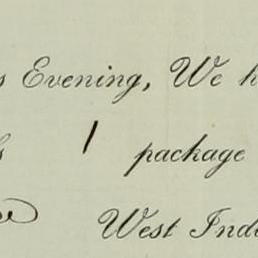 s Evening, We h
s 1 package
West Inde